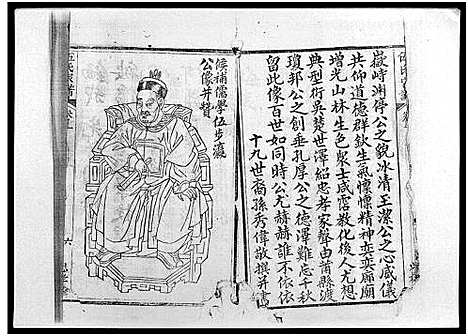 嶽峙淵停公之貌冰清玉潔公之心威儀
共仰道德群欽生氣懔懔精神奕奕廊廟
增光山林生色衆士咸霑教化後人尤想
典型術吳楚世澤紹忠孝家聲由莆縣渡
瓊邦公之創垂孔厚公之德澤難忘千秋
留此像百世如同時公尤赫赫誰不依依
十九世裔孫秀偉敬撰并書
候補儒學伍步瀛
公像并贊